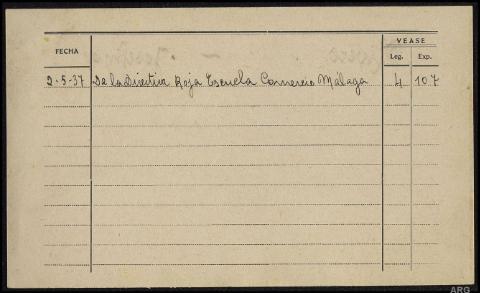 VÉASE
FECHA
Leg. Exp.
2-5-37 De la Directiva Roja Escuela Comercio Málaga 4 107
ARG